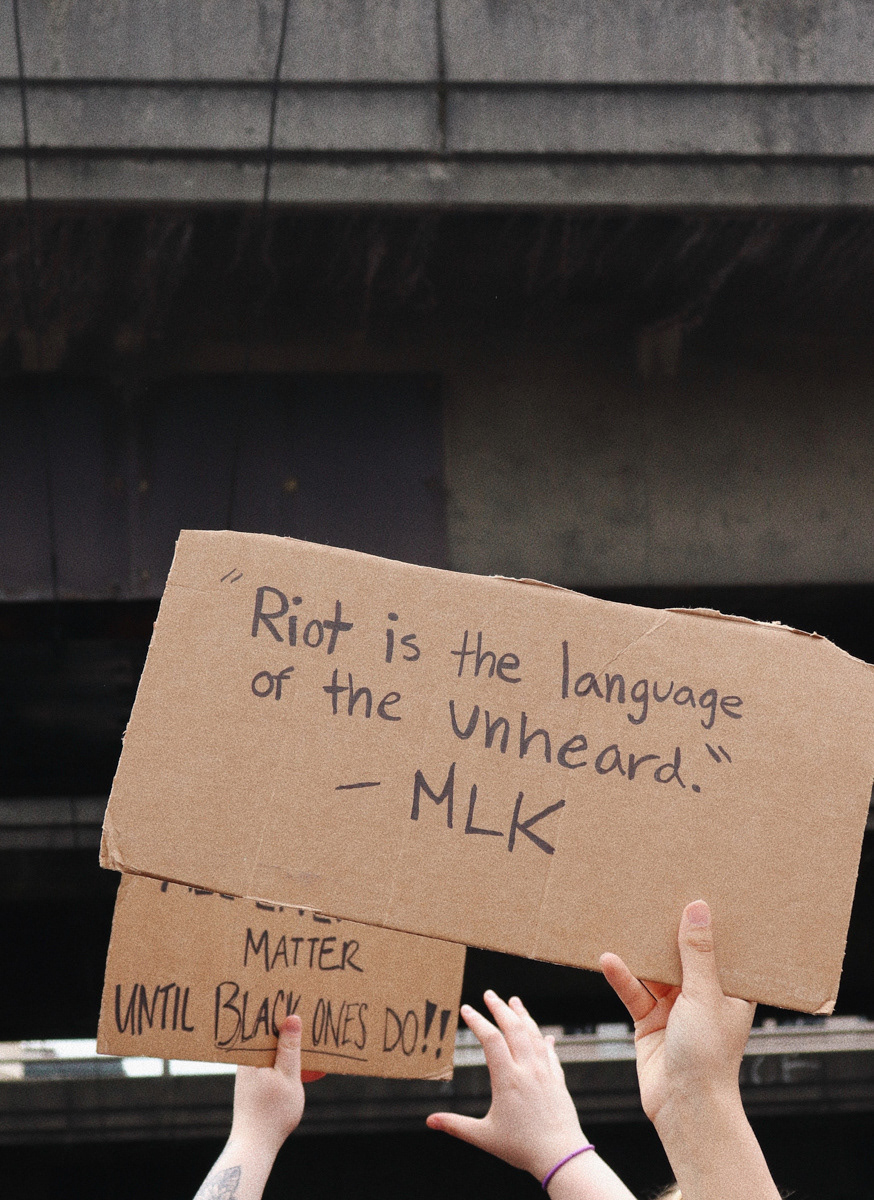 "Riot is the language
of the unheard."
- MLK
MATTER
UNTIL BLACK ONES DO!!